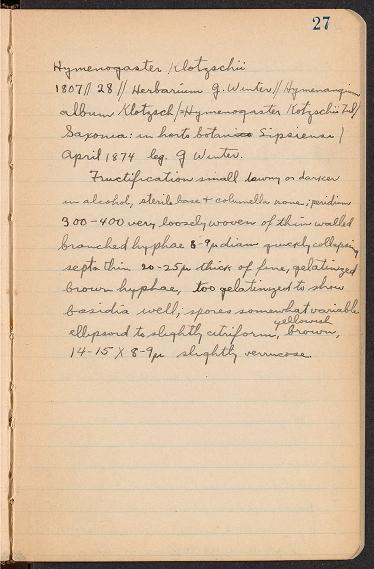 27
Hymenogaster Klotzschii
1807 // 28 // Herbarium G. Winter // Hymenangium
album Klotzsch / = Hymenogaster Klotzschii Tul /
Saxonia: in horto botanico Lipsiensi /
April 1874 leg. G Winter.
Fructification small tawny or darker
in alcohol, sterile base & columella none; peridium
300-400 very loosely woven of thin walled
branched hyphae 8-9µ diam quickly collapsing
septa thin 20-25µ thick of fine, gelatinized
brown hyphae, too gelatinized to show
basidia well; spores somewhat variable
ellipsoid to slightly citriform, yellowish brown,
14-15 X 8-9µ slightly verrucose